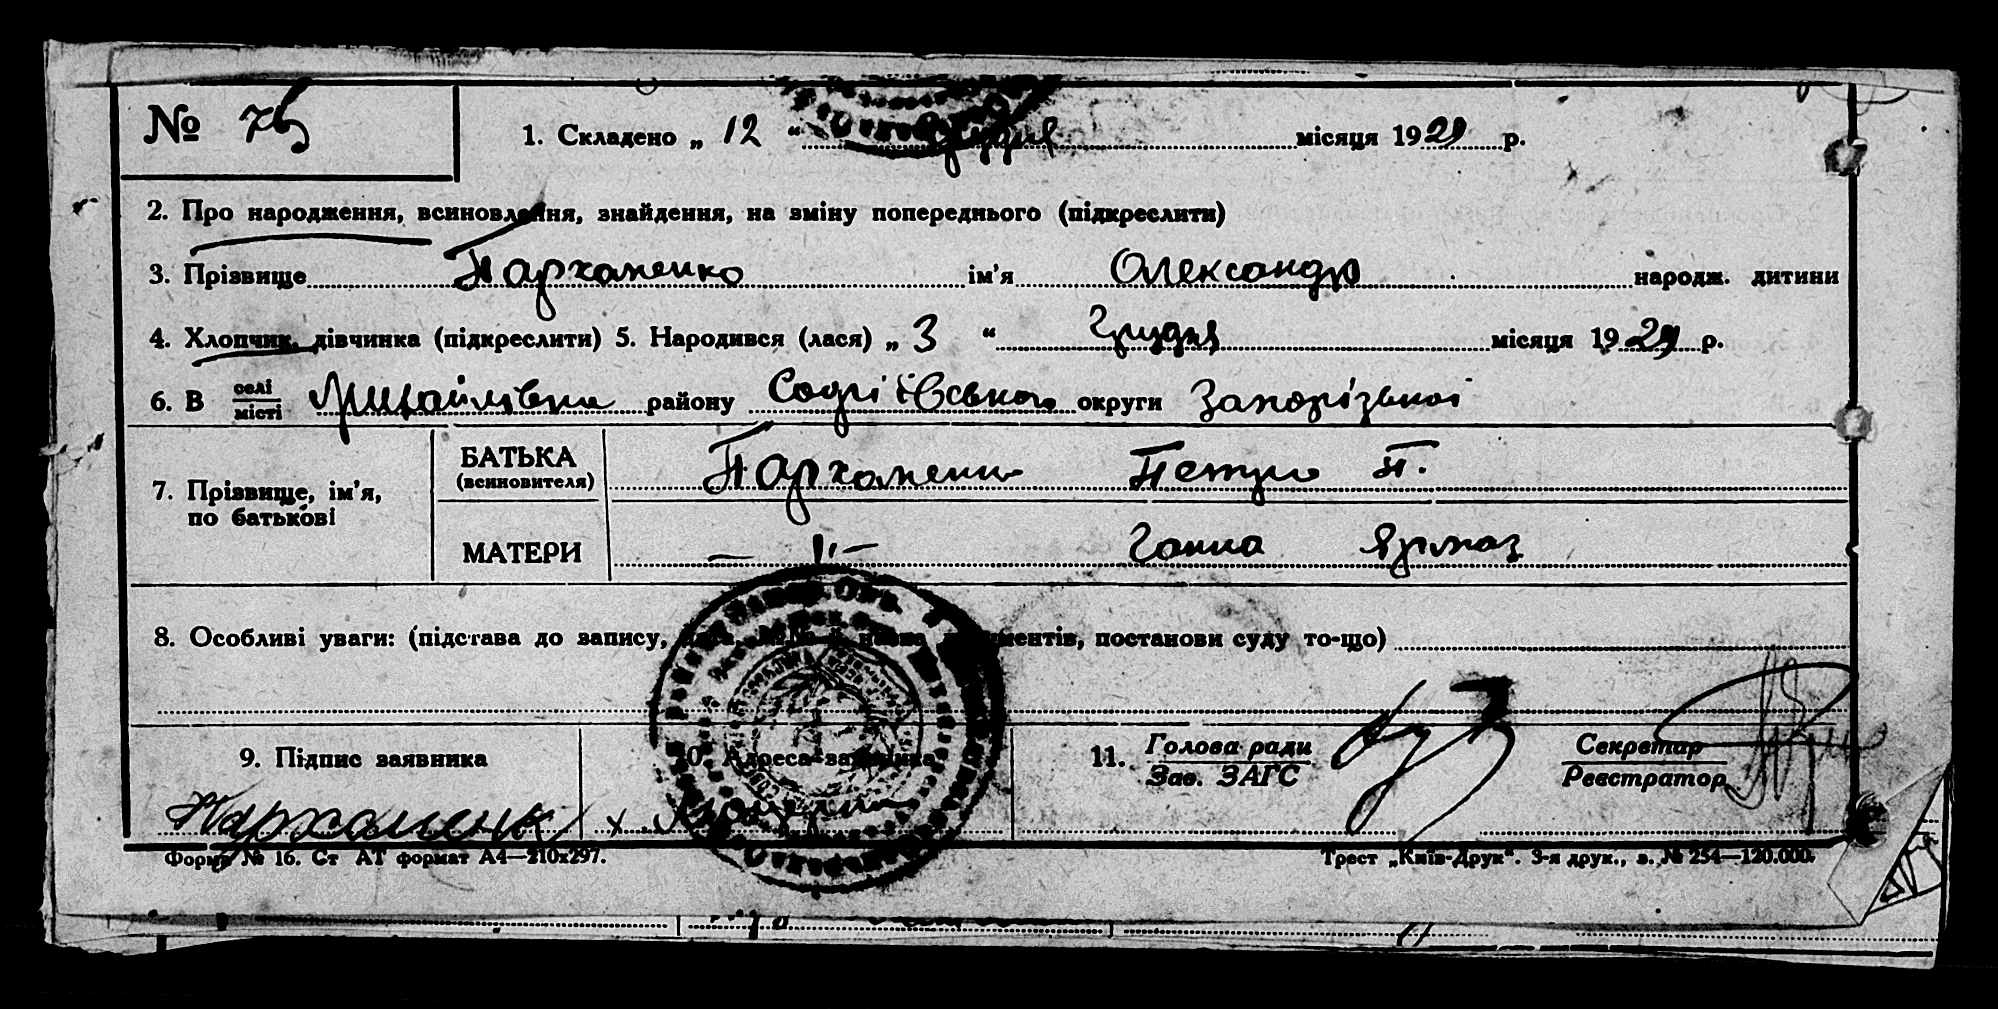 № 75 1. Складено „ 12 “ Грудня місяця 1929 р.
2. Про народження, всиновлення, знайдення, на зміну попереднього (підкреслити)
3. Прізвище Пархоменко ім’я Олександр народж. дитини
4. Хлопчик, дівчинка (підкреслити) 5. Народився (лася) „ 3 “ Грудня місяця 1929 р.
6. В селі/місті Михайлівка району Софіївського округи Запорізької
7. Прізвище, ім’я, по батькові БАТЬКА (всиновителя) Пархоменко Петро П.
МАТЕРИ — „ — Ганна
8. Особливі уваги: (підстава до запису, документів, постанови суду то-що)
9. Підпис заявника 10. Адреса заявника 11. Голова ради/Зав. ЗАГС Секретар/Реєстратор
Пархоменко
Форма № 16. Ст АТ формат А4—210х297. Трест „Київ-Друк“. 3-я друк., з. № 254—120.000.